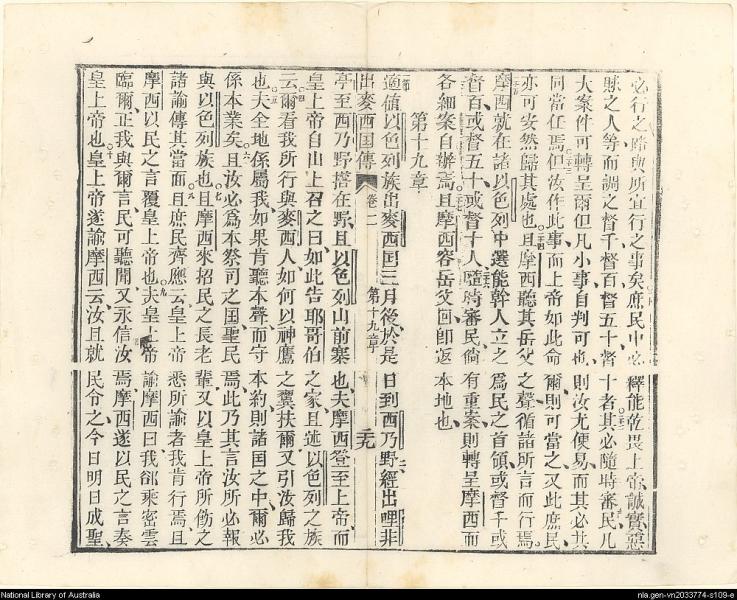 必行之路與所宜行之事矣庶民中必擇能乾畏上帝誠實惡
賕之人等而調之督千督百督五十督十者其必隨時審民凡
大案件可轉呈爾但凡小事自判可也則汝尤便易而其必共
同當任焉但汝作此事而上帝如此命爾則可當之又此庶民
亦可安然歸其處也且摩西聽其岳父之聲循諸所言而行焉
摩西就在諸以色列中選能幹人立之爲民之首領或督千或
督百或督五十或督十人隨時審民倘有重案則轉呈摩西而
各細案自辦焉且摩西容岳父回卽返本地也
第十九章
適值以色列族出麥西国三月後於是日到西乃野經出哩非
出麥西国傳 卷二 第十九章 二九
亭至西乃野搭在野且以色列山前寨也夫摩西登至上帝而
皇上帝自山上召之曰如此告耶哥伯之家且述以色列之族
云爾看我所行與麥西人如何以神鷹之翼扶爾又引汝歸我
也夫全地係屬我如果肯聽本聲而守本約則諸国之中爾必
係本業矣且汝必爲本祭司之国聖民焉此乃其言汝所必報
與以色列族也且摩西來招民之長老輩又以皇上帝所飭之
諸諭傳其當面且庶民齊應云皇上帝悉所諭者我肯行焉且
摩西以民之言覆皇上帝也夫皇上帝諭摩西曰我卻乘密雲
臨爾正我與爾言民可聽聞又永信汝焉摩西遂以民之言奏
皇上帝也皇上帝遂諭摩西云汝且就民令之今日明日成聖
National Library of Australia
nla.gen-vn2033774-s109-e